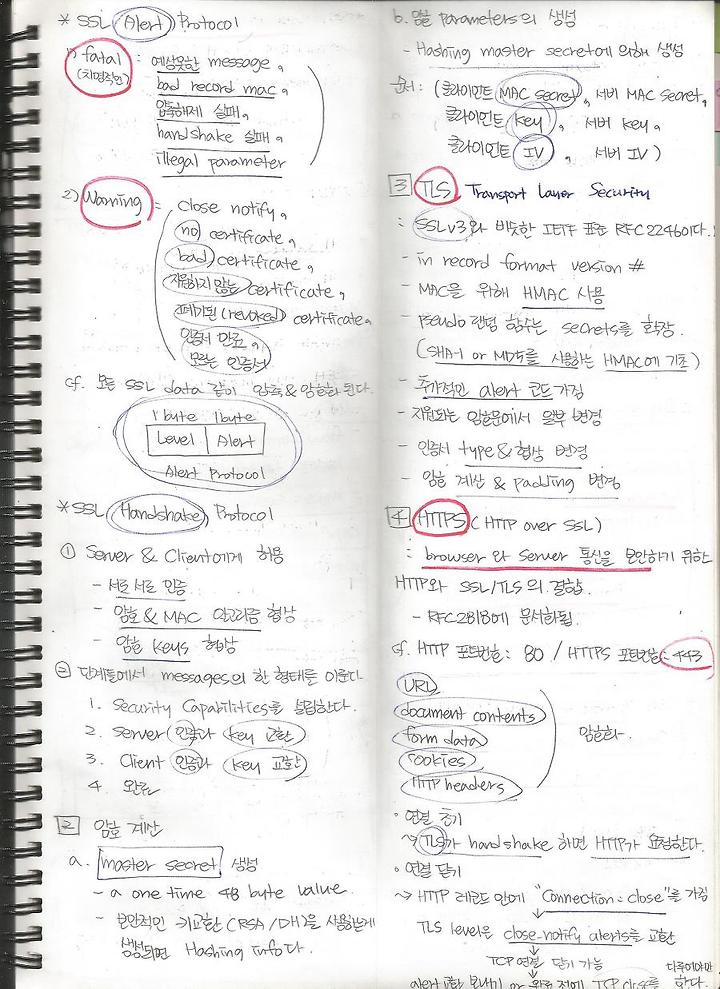 * SSL Alert Protocol
1) fatal : 예상못한 message,
(치명적인) bad record mac,
압축해제 실패,
handshake 실패,
illegal parameter
2) Warning : close notify,
no certificate,
bad certificate,
지원하지 않는 certificate,
폐기된 (revoked) certificate,
인증서 만료,
모르는 인증서
cf. 모든 SSL data 같이 압축 & 암호화 된다.
1 byte 1 byte
Level Alert
Alert Protocol
* SSL Handshake Protocol
① Server & Client에게 허용
- 서로 서로 인증
- 암호 & MAC 알고리즘 협상
- 암호 keys 협상
② 단계들에서 messages의 한 형태를 이룬다.
1. Security Capabilities를 설립한다.
2. Server 인증과 key 교환
3. Client 인증과 key 교환
4. 완료
2 암호 계산
a. master secret 생성
- a one time 48 byte value.
- 보안적인 키교환 (RSA/DH)을 사용한게
생성되면 Hashing info다.
b. 암호 parameters의 생성
- Hashing master secret에 의해 생성
문서 : (클라이언트 MAC secret, 서버 MAC secret,
클라이언트 key, 서버 key,
클라이언트 IV, 서버 IV)
3 TLS Transport Layer Security
: SSLv3와 비슷한 IETF 표준 RFC 2246이다.
- in record format version #
- MAC을 위해 HMAC 사용
- pseudo 랜덤 함수는 secrets를 확장.
(SHA-1 or MD5를 사용하는 HMAC에 기초)
- 추가적인 alert 코드 가짐
- 지원되는 암호문에서 일부 변경
- 인증서 type & 협상 변경
- 암호 계산 & padding 변경
4 HTTPS (HTTP over SSL)
: browser와 Server 통신을 보안하기 위한
HTTP와 SSL/TLS의 결합.
- RFC2818에 문서화됨.
cf. HTTP 포트번호 : 80 / HTTPS 포트번호 : 443
URL
document contents
form data
cookies
HTTP headers
암호화.
• 연결 초기
~> TLS가 handshake 하면 HTTP가 요청한다.
• 연결 닫기
~> HTTP 레코드 안에 "Connection : close"를 가짐
TLS level은 close-notify alerts를 교환
TCP 연결 닫기 가능
alert 교환 보내기 or 완료 전에 TCP close를 다루어야만 한다.